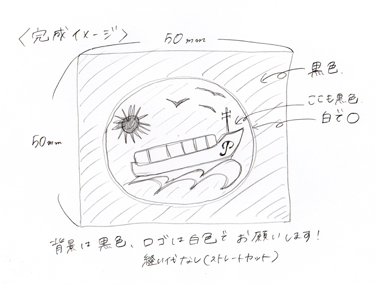 〈完成イメージ〉
50mm
黒色
ここも黒色
白で○
50mm
背景は黒色、ロゴは白色でお願いします!
縫い代なし(ストレートカット)